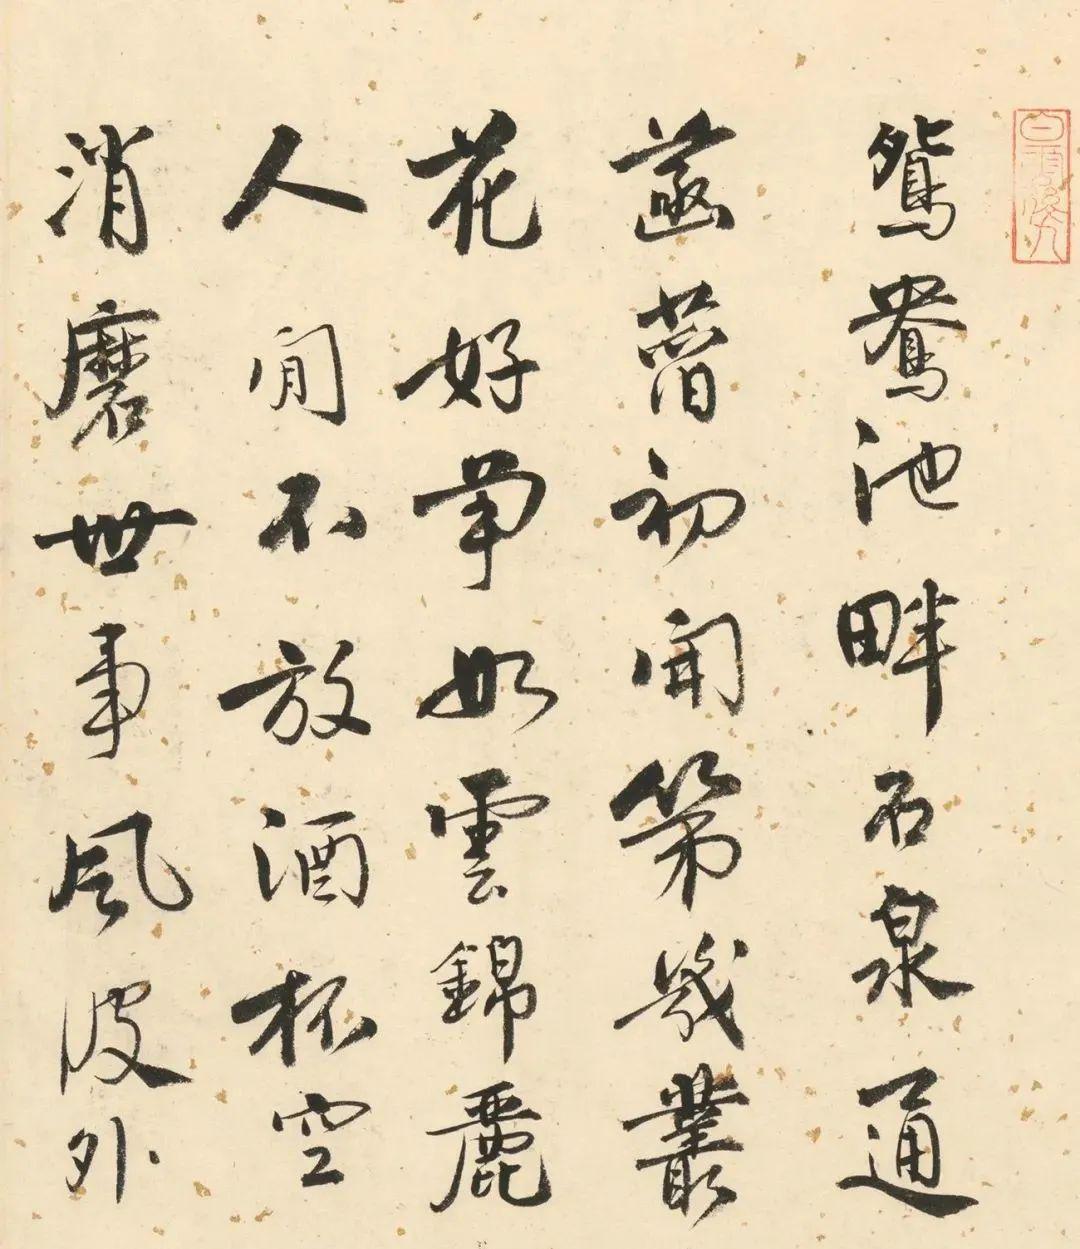 鴛鴦池畔石泉通
菡萏初開第幾叢
花好爭如雲錦麗
人閒不放酒杯空
消磨世事風波外